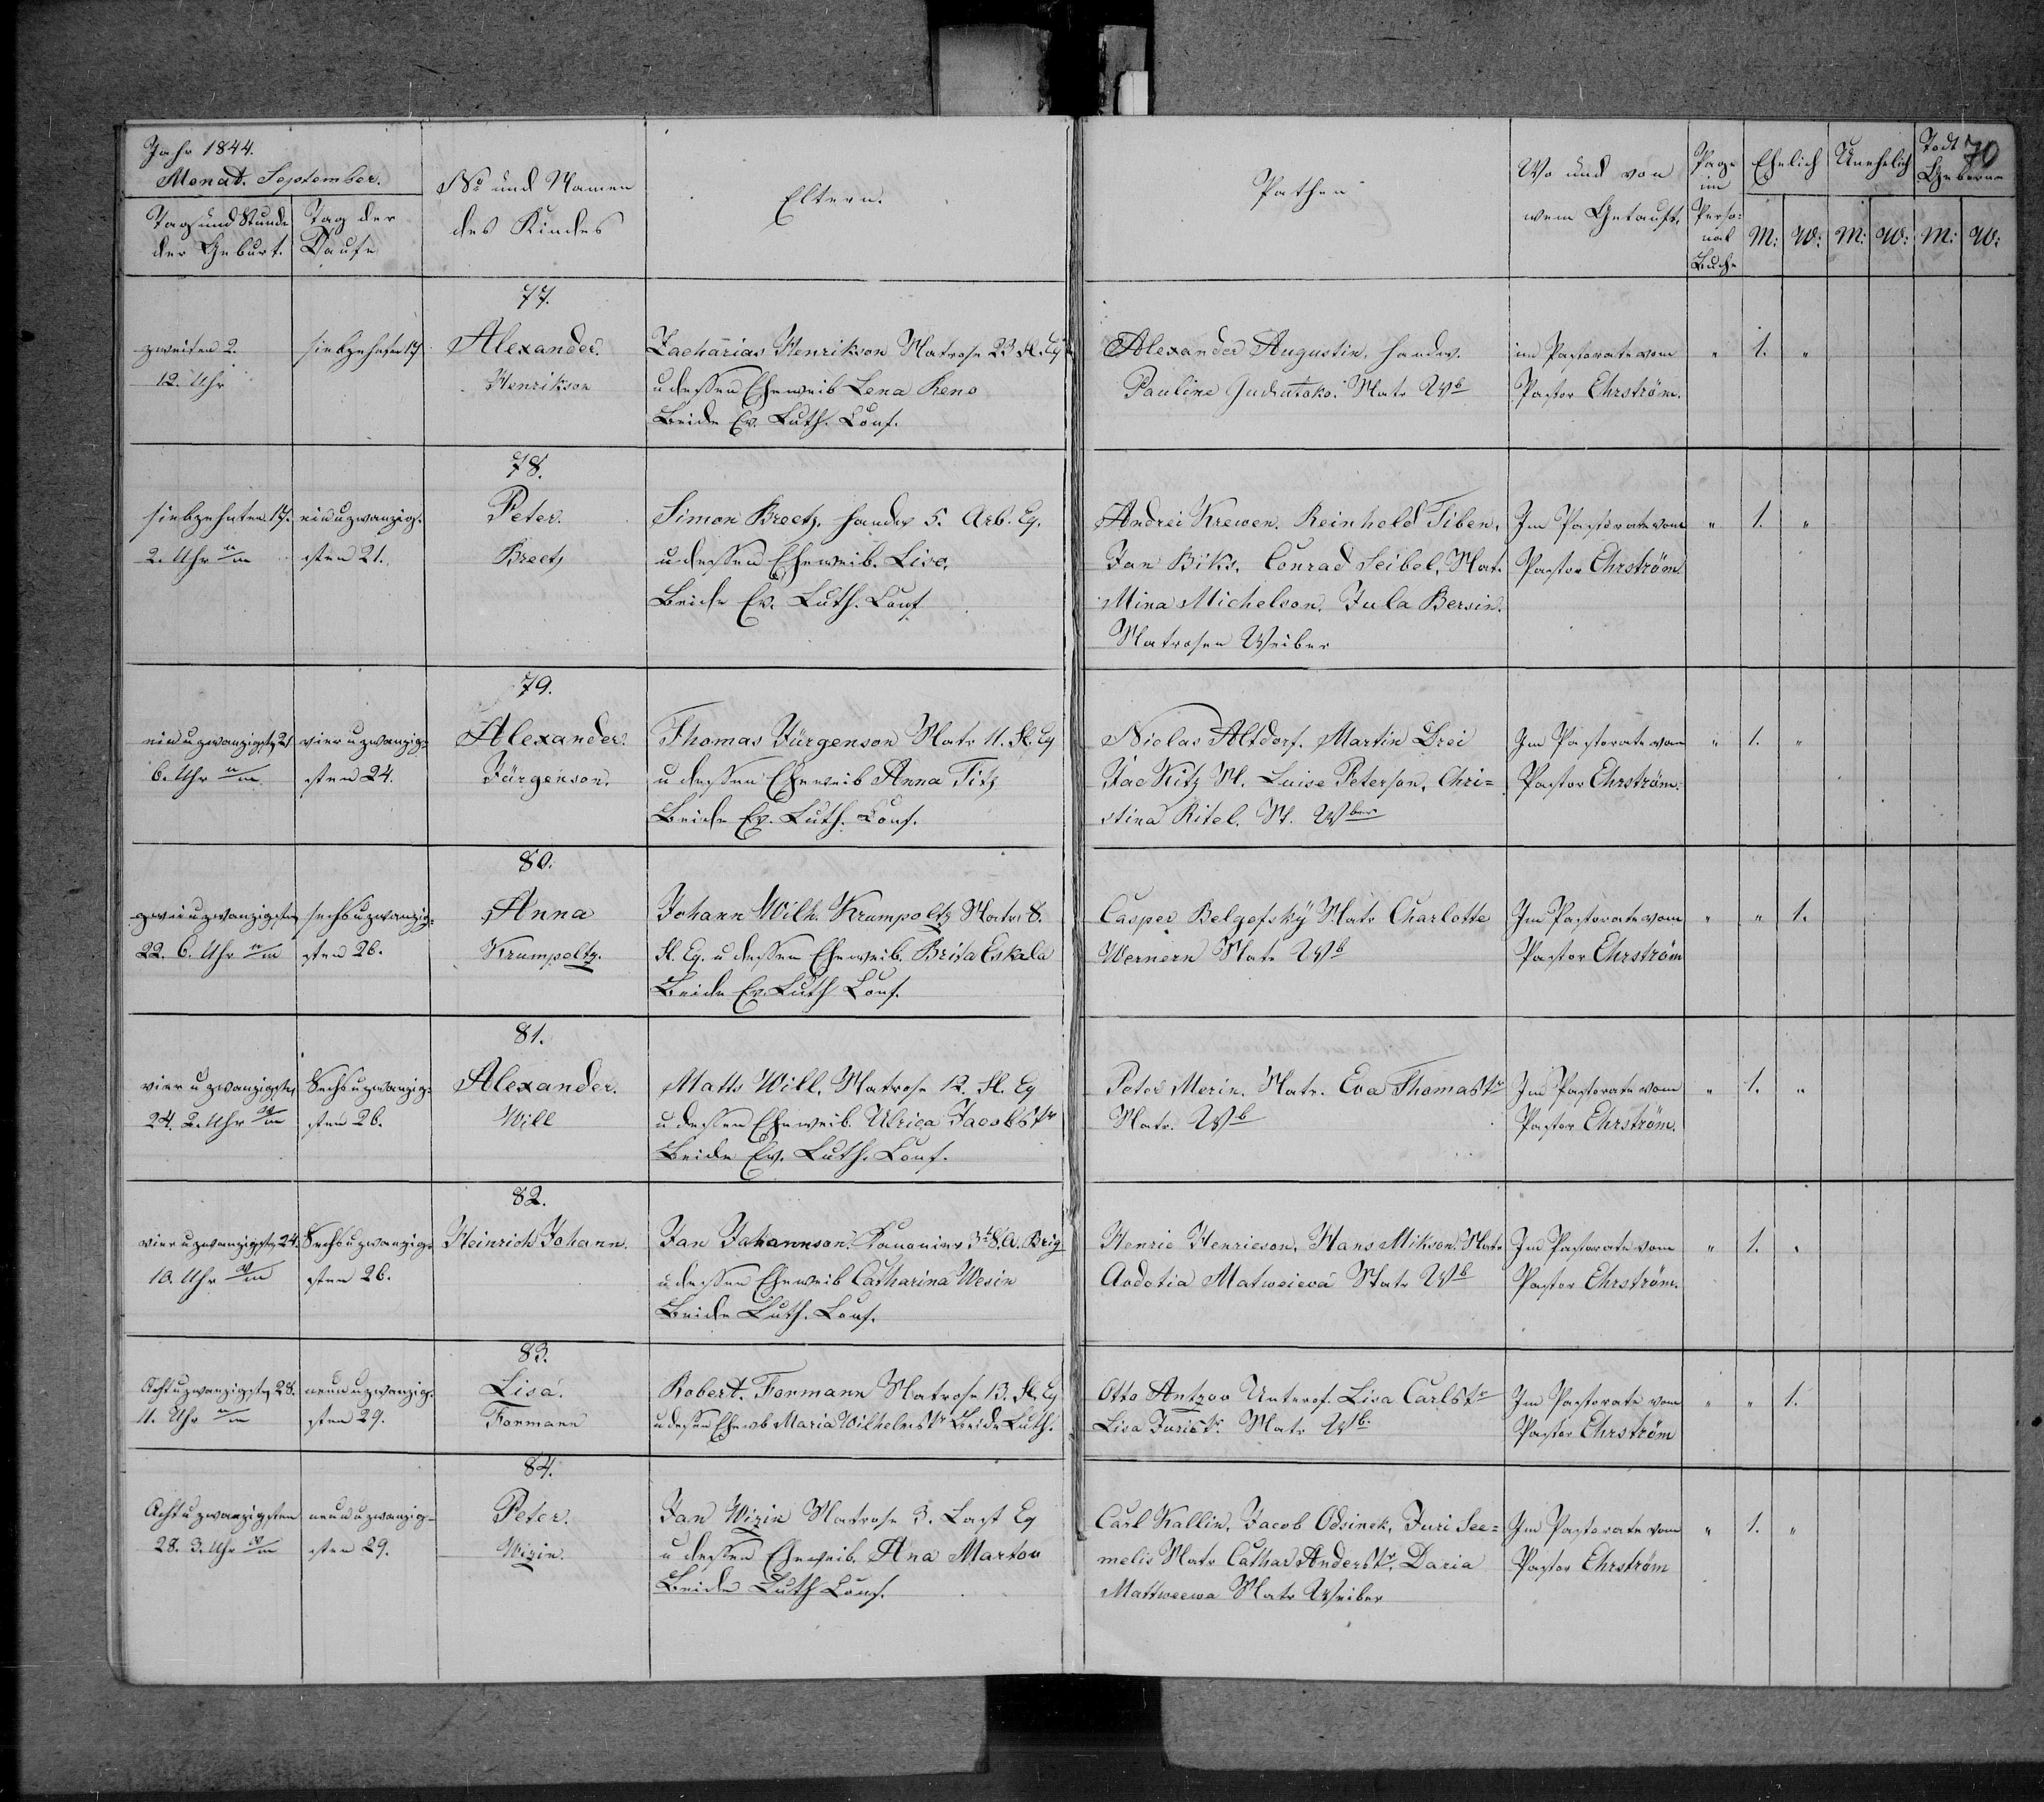 Jahr 1844.
Monat. September.
Tag und Stunde der Geburt.
Tag der Taufe
No und Namen des Kindes
Eltern.
Pathen
Wo und von wem Getauft.
Page im Perso-nal Buche
Ehelich
Unehelich
Todt Geborne
70
M: W: M: W: M: W:
77.
zweiten 2.
12. Uhr
siebzehnten 17
Alexander.
Henrikson
Zacharias Henrikson Matrose 23 Fl. Eq
u dessen Eheweib Lena Keno
Beide Ev. Luth. Conf.
Alexander Augustin, Handw.
Pauline Matr Wb
im Pastorate vom
Pastor Ehrström.
" 1. "
78.
siebzehnten 17.
2. Uhr n/m
einuzwanzig-
sten 21.
Peter.
Breetz
Simon Breetz, Handw 5. Arb. Eq.
u dessen Eheweib. Lise.
Beide Ev. Luth. Conf
Andrei Krewen. Reinhold Tiben,
Jan Biks. Conrad Seibel, Matr.
Mina Michelson. Jula Bersin.
Matrosen Weiber
Im Pastorate vom
Pastor Ehrström
" 1. "
79.
einuzwanzigsten 21
6. Uhr n/m
vieruzwanzig-
sten 24.
Alexander.
Jürgenson.
Thomas Jürgenson Matr 11. Fl. Eq
u dessen Eheweib Anna Titz
Beide Ev. Luth. Conf.
Niclas Altdorf. Martin Drei
Jac Kitz M. Luise Peterson, Chri-
stina Ritel. M. Wber
Im Pastorate von
Pastor Ehrström.
" 1. "
80.
zweiuzwanzigsten
22. 6. Uhr n/m
sechsuzwanzig-
sten 26.
Anna
Krumpoltz.
Johann Wilh. Krumpoltz Matr. 8.
Fl. Eq. u dessen Eheweib. Brita Eskala
Beide Ev. Luth Conf.
Casper Belgofsky Matr Charlotte
Wernern Matr Wb
Im Pastorate vom
Pastor Ehrström
" " 1.
81.
vieruzwanzigsten
24. 2. Uhr v/m
Sechsuzwanzig-
sten 26.
Alexander.
Will
Matts Will. Matrose 12. Fl. Eq
u dessen Eheweib. Ulrica Jacobstr
Beide Ev. Luth. Conf.
Peter Merin. Matr. Eva Thomastr
Matr. Wb
Im Pastorate vom
Pastor Ehrström.
" 1. "
82.
vieruzwanzigsten 24.
10. Uhr v/m
Sechsuzwanzig-
sten 26.
Heinrich Johann.
Jan Johannson. Kanonier 3t 8. A. Brig
u dessen Eheweib Catharina Wesin
Beide Luth. Conf.
Henric Henricson, Hans Mikson. Matr
Avdotia Matweiewa Matr Wb
Im Pastorate vom
Pastor Ehrström.
" 1. "
83.
Achtuzwanzigsten 28.
11. Uhr n/m
neunuzwanzig-
sten 29.
Lisa.
Formann
Robert. Formann Matrose 13. Fl. Eq
u dessen Ehewb Maria Wilhelmstr Beide Luth.
Otto Antzov Unterof. Lisa Carlstr
Lisa Juristr. Matr Wb.
Im Pastorate vom
Pastor Ehrström
" " 1.
84.
Achtuzwanzigsten
28. 3. Uhr v/m
neunuzwanzig-
sten 29.
Peter.
Wizin.
Jan Wizin Matrose 3. Last Eq
u dessen Eheweib. Ana Martow
Beide Luth Conf.
Carl Kallin, Jacob Odsinek, Juri See-
melis Matr Cathar Anderstr, Daria
Mattweewa Matr Weiber
Im Pastorate vom
Pastor Ehrström
" 1. "